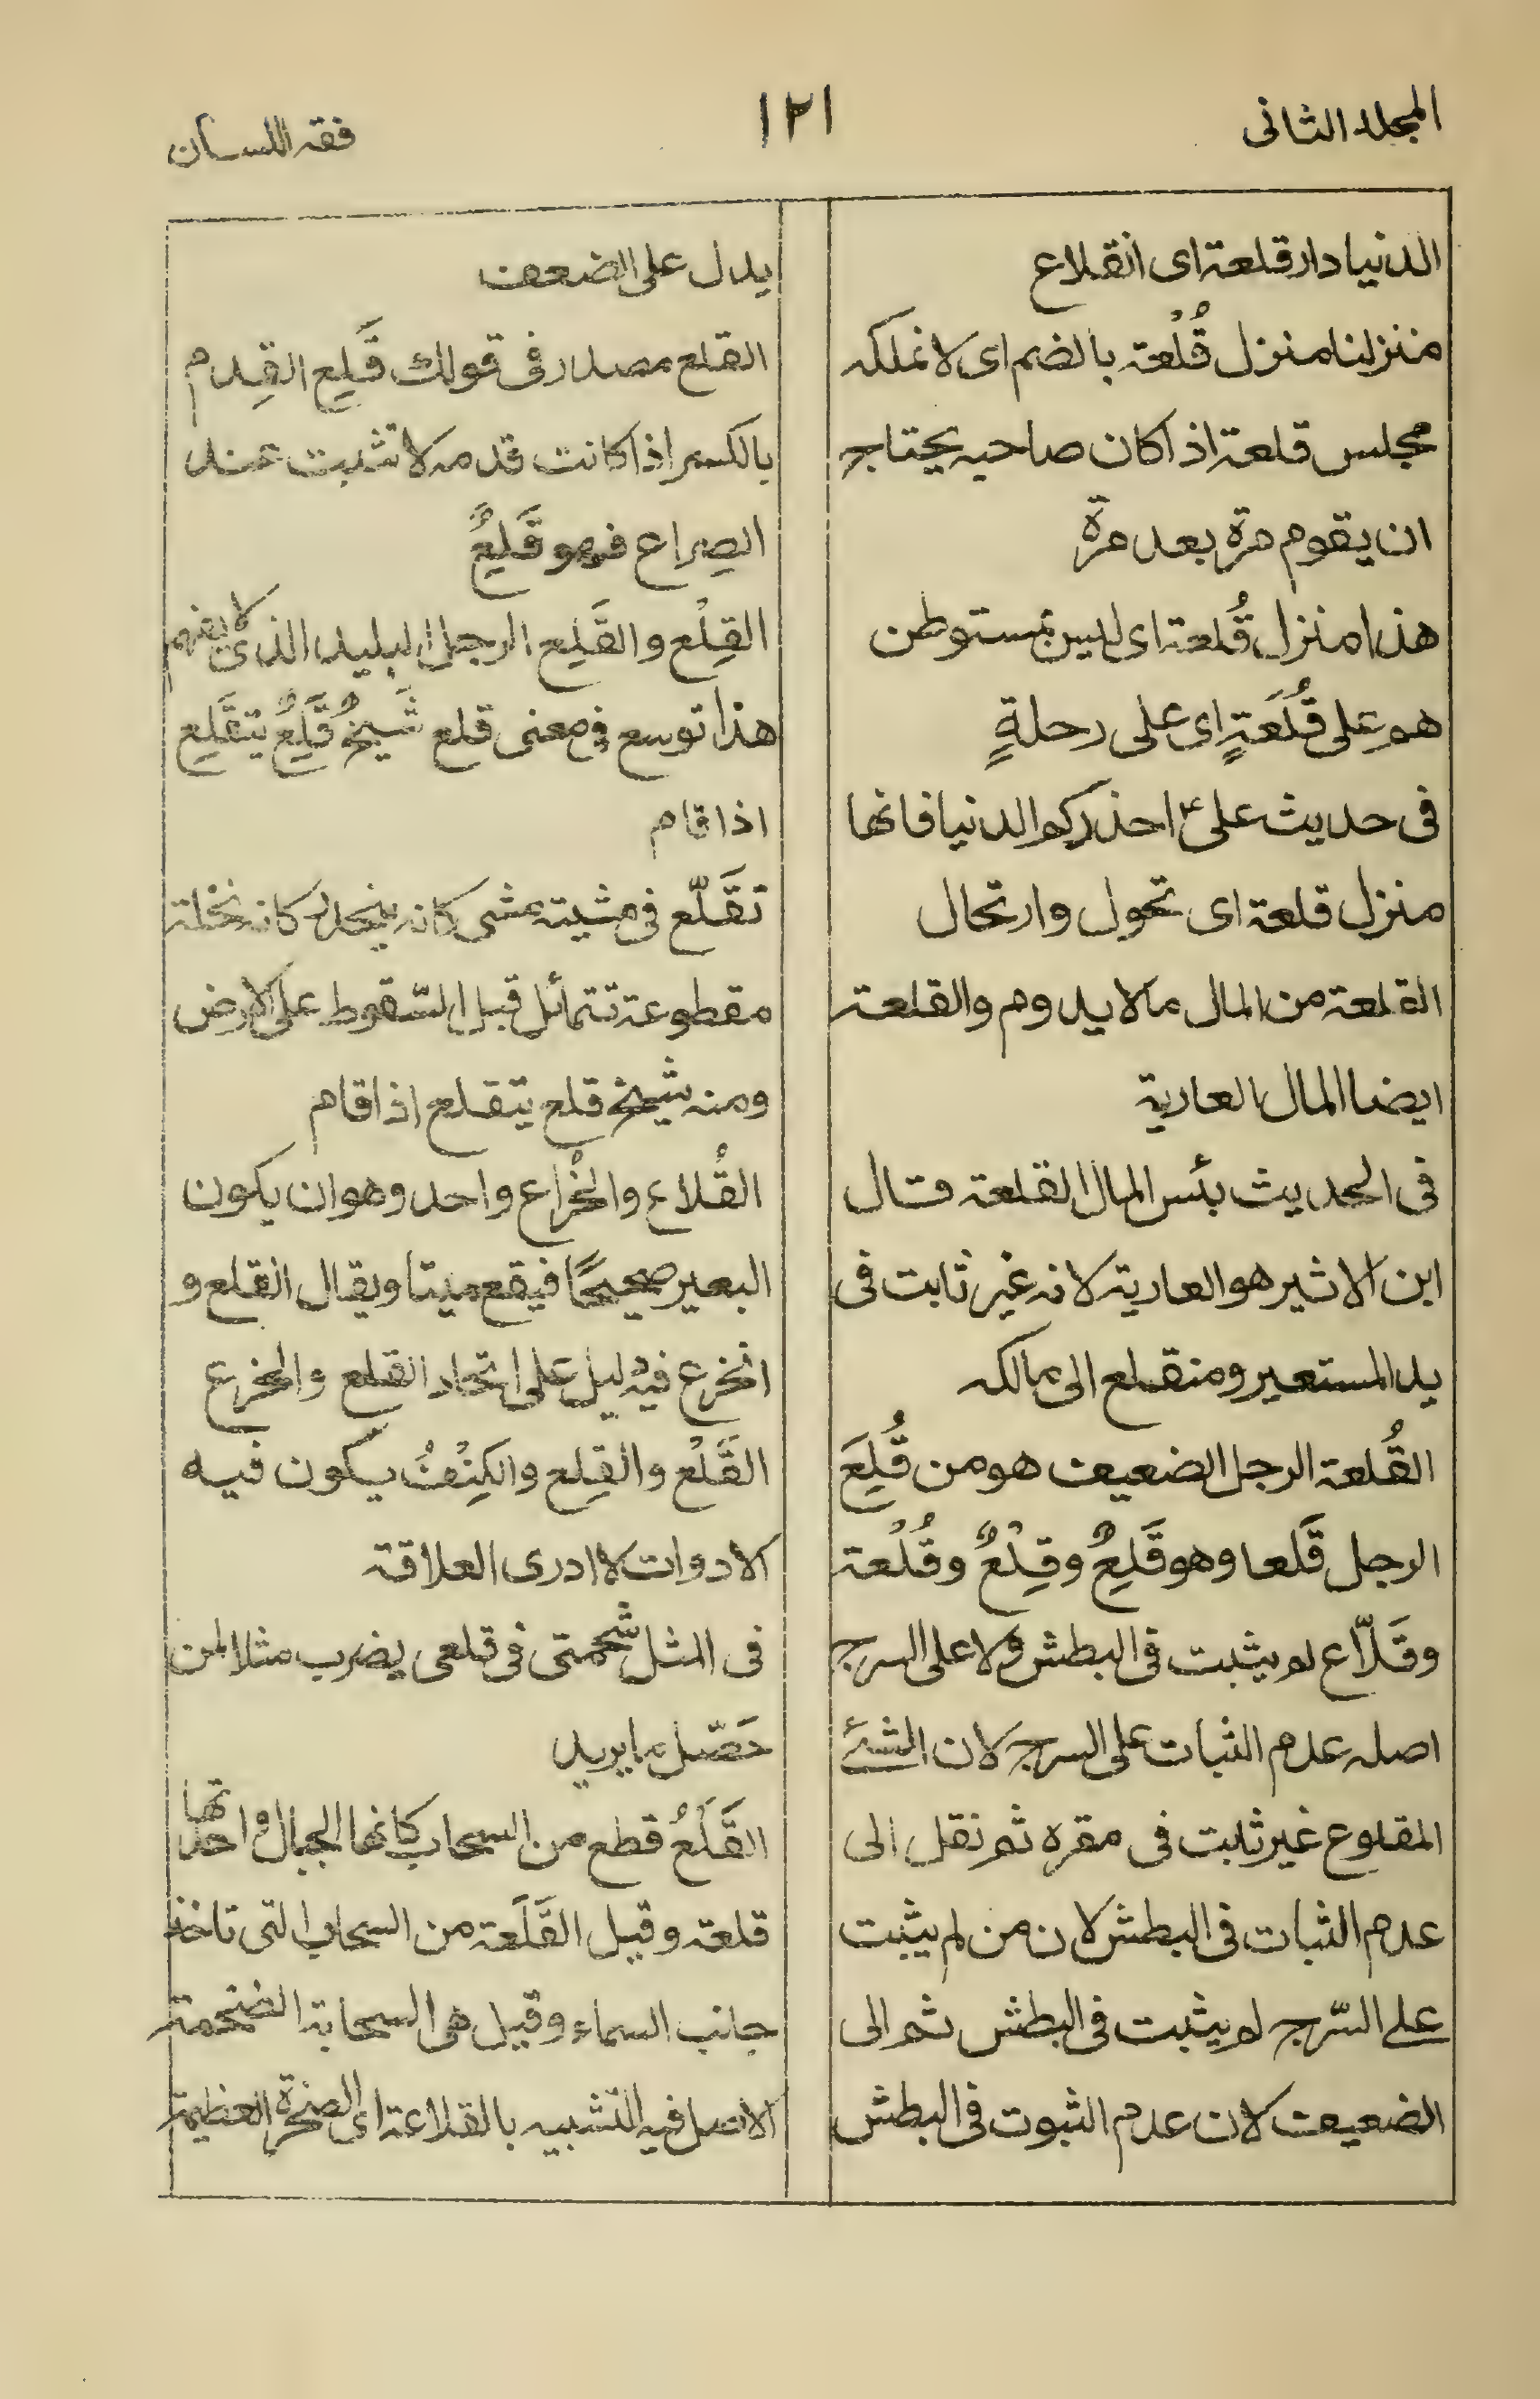 المجلد الثانى
١٢١
فقہ اللسان
الدنیا دار قلعۃ ای انقلاع
مننزلنا منزل قُلْعۃ بالضم ای لا نملکہ
مجلس قلعۃ اذا کان صاحبہ یحتاج
ان یقوم مرۃ بعد مرۃ
ھذا منزل قُلعۃ ای لیس بمستوطن
ھو علی قُلَعَۃٍ ای علی رحلۃٍ
فی حدیث علیؑ احذرکم الدنیا فانھا
منزل قلعۃ ای تحول وارتحال
القلعۃ من المال مالا یدوم والقلعۃ
ایضا المال العاریۃ
فی الحدیث بئس المال القلعۃ قال
ابن الاثیر ھو العاریۃ لانہ غیر ثابت فی
ید المستعیر ومنقلع الی مالکہ
القُلعۃ الرجل الضعیف ھو من قُلِعَ
الرجل قَلعا وھو قَلِعٌ وقِلْعٌ وقُلْعۃ
وقَلّاع لم یثبت فی البطش ولا علی السرج
اصلہ عدم الثبات علی السرج لان الشئ
المقلوع غیر ثابت فی مقرہ ثم نقل الی
عدم الثبات فی البطش لان من لم یثبت
علے السّرج لم یثبت فی البطش ثم الی
الضعیف لان عدم الثبوت فی البطش
یدل علی الضعف
القلع مصدر فی قولک قَلِع القِدم
بالکسر اذا کانت قدمہ لا تثبت عند
الصِراع فھو قَلِعٌ
القِلْع والقَلِع الرجل البلید الذی لا یفھم
ھذا توسع فی معنی قلع شَیخٌ قَلِعٌ یتقَلع
اذا قام
تقَلّع فی مشیتہ مشی کانہ ینحدر کانہ نخْلۃ
مقطوعۃ تتمائل قبل السّقوط علی الارض
ومنہ شیخ قلع یتقلع اذا قام
القُلاع والخُراع واحد وھو ان یکون
البعیر صحیحًا فیقع میتا ویقال انقلع و
انخرع فیہ دلیل علی اتحاد القلع والخرع
القَلْع والقِلع والکِنْفُ یکون فیہ
الادوات لا ادری العلاقۃ
فی المثل شحمتی فی قلعی یضرب مثلا لمن
حَصّل ما یرید
القَلَعُ قطع من السحاب کانھا الجبال واحدتھا
قلعۃ وقیل القَلَعۃ من السحاب التی تاخذ
جانب السماء وقیل ھی السحابۃ الضخمۃ
الاصل فیہ التشبیہ بالقلاعۃ ای الصخرۃ العظیمۃ